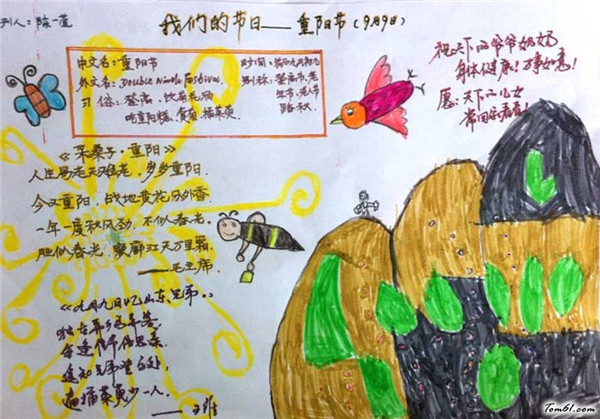 我们的节日——重阳节(9月9日)
中文名:重阳节
外文名:Double Ninth Festival
习俗:登高、饮菊花酒
吃重阳糕、赏菊、插茱萸
时间:
别称:登高节、老
年节、老人节
祝天下的爷爷奶奶
身体健康!万事如意!
愿:天下的儿女
常回家看看!
《采桑子·重阳》
人生易老天难老,岁岁重阳.
今又重阳,战地黄花分外香.
一年一度秋风劲,不似春光.
胜似春光,寥廓江天万里霜.
——毛主席
《九月九日忆山东兄弟》
独在异乡为异客,
每逢佳节倍思亲.
遥知兄弟登高处,
遍插茱萸少一人.
——王维
Tom61.com